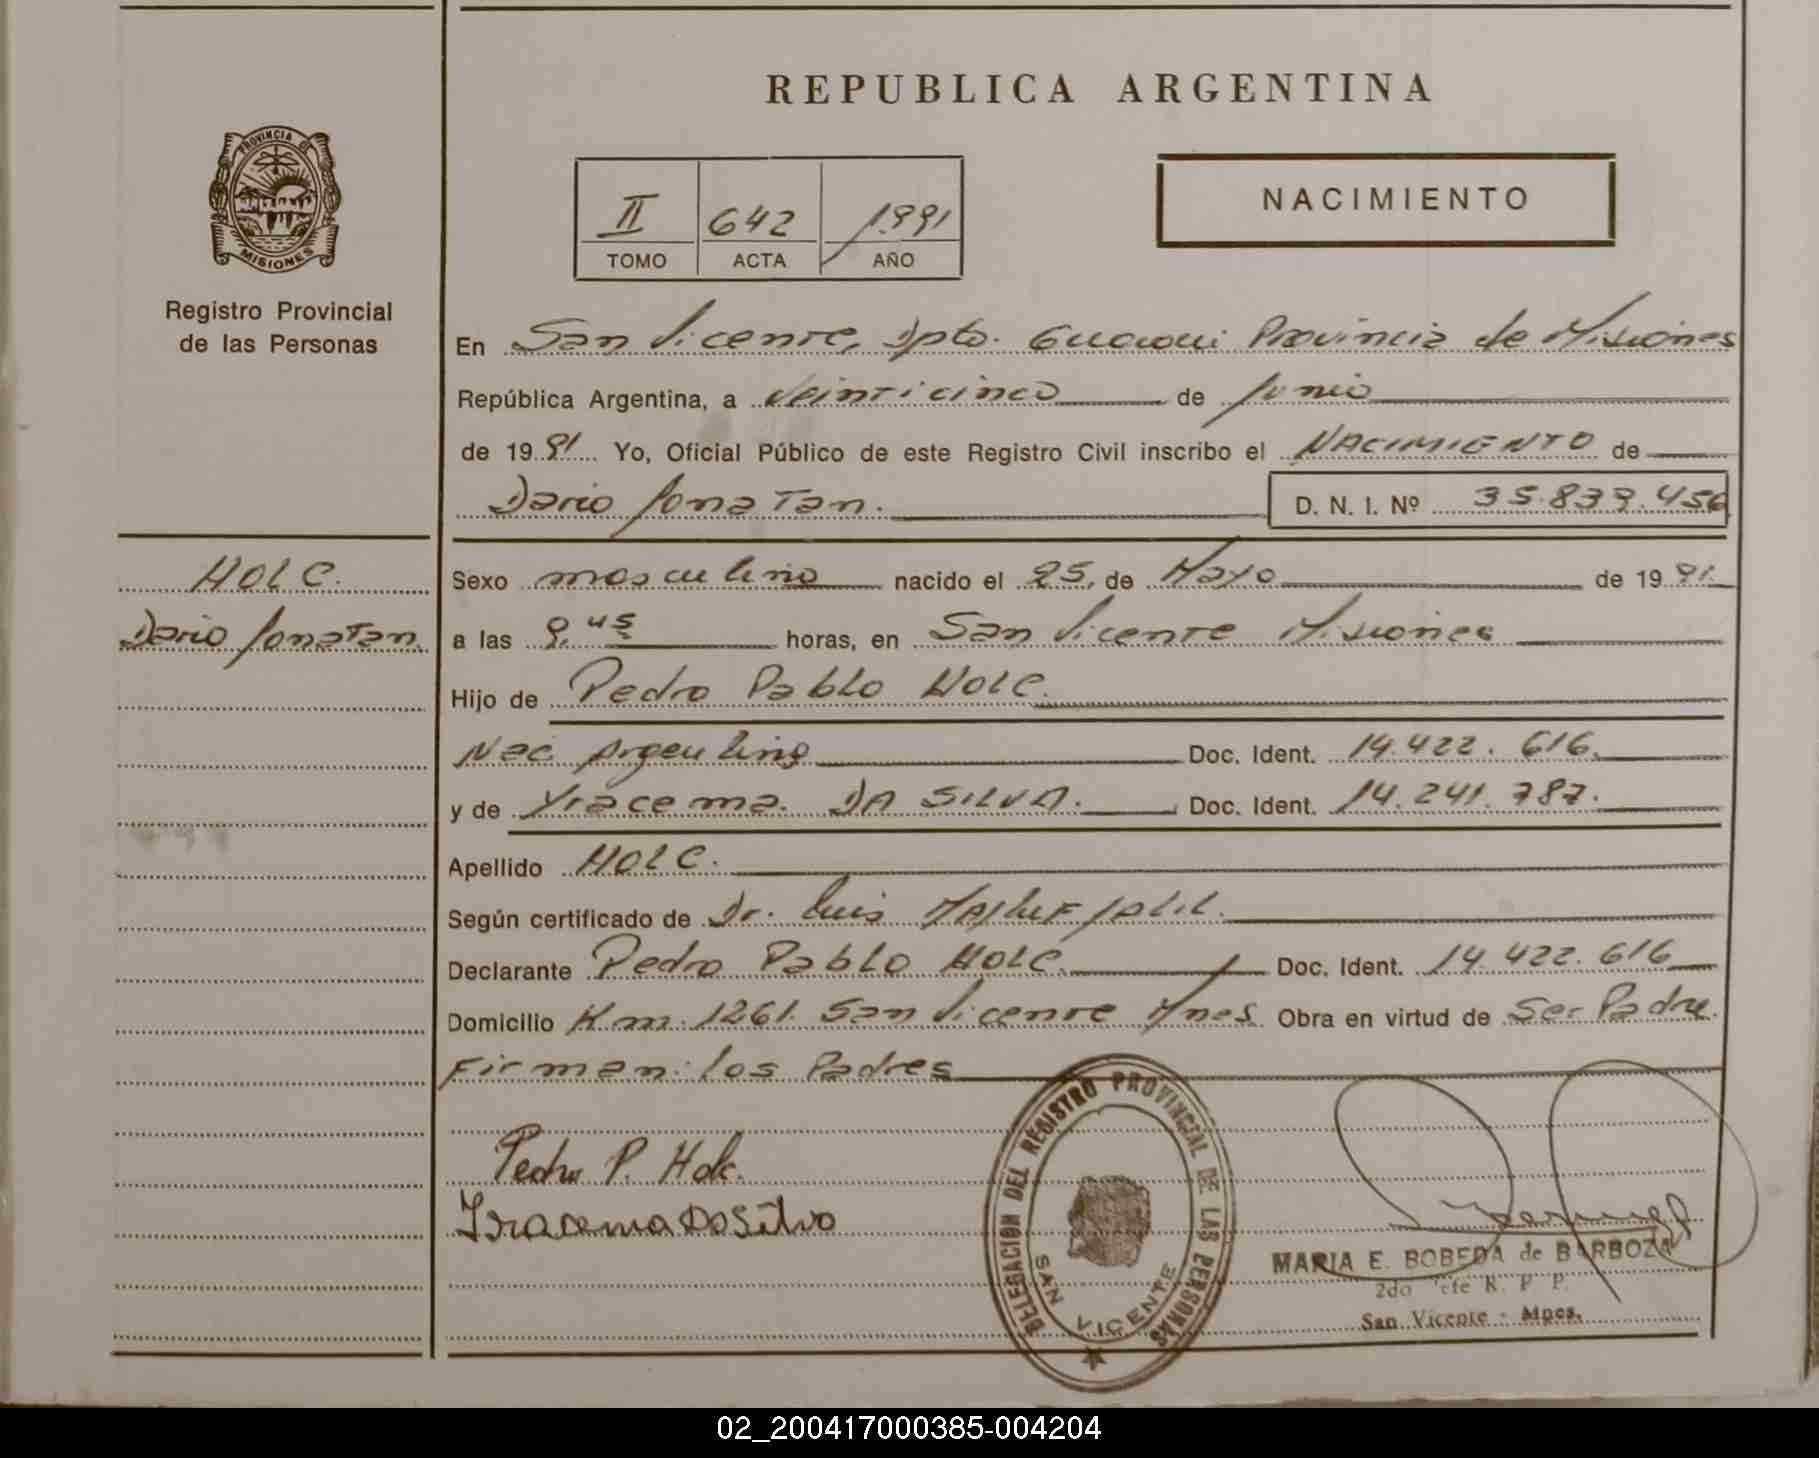 REPUBLICA ARGENTINA
PROVINCIA DE
MISIONES
Registro Provincial
de las Personas
II 642 1991
TOMO ACTA AÑO
NACIMIENTO
En San Vicente, Dpto. Guarani Provincia de Misiones
República Argentina, a veinticinco de Junio
de 1991 Yo, Oficial Público de este Registro Civil inscribo el NACIMIENTO de
Dario Jonatan. D. N. I. Nº 35.839.456
HOLC.
Dario Jonatan.
Sexo masculino nacido el 25, de Mayo de 1991.
a las 9,45 horas, en San Vicente Misiones
Hijo de Pedro Pablo HOLC.
Nac. Argentino Doc. Ident. 14.422.616.
y de Yracema. DA SILVA. Doc. Ident. 14.241.787.
Apellido HOLC.
Según certificado de Dr. Luis
Declarante Pedro Pablo HOLC. Doc. Ident. 14.422.616
Domicilio Km. 1261. San Vicente Mnes. Obra en virtud de Ser Padre.
Firman: los Padres
Pedro P. Holc.
Iracema Da Silva
DELEGACION DEL REGISTRO PROVINCIAL DE LAS PERSONAS
SAN VICENTE
MARIA E. BOBEDA de BARBOZA
2do Jefe R. P. P.
San Vicente - Mnes.
02_200417000385-004204